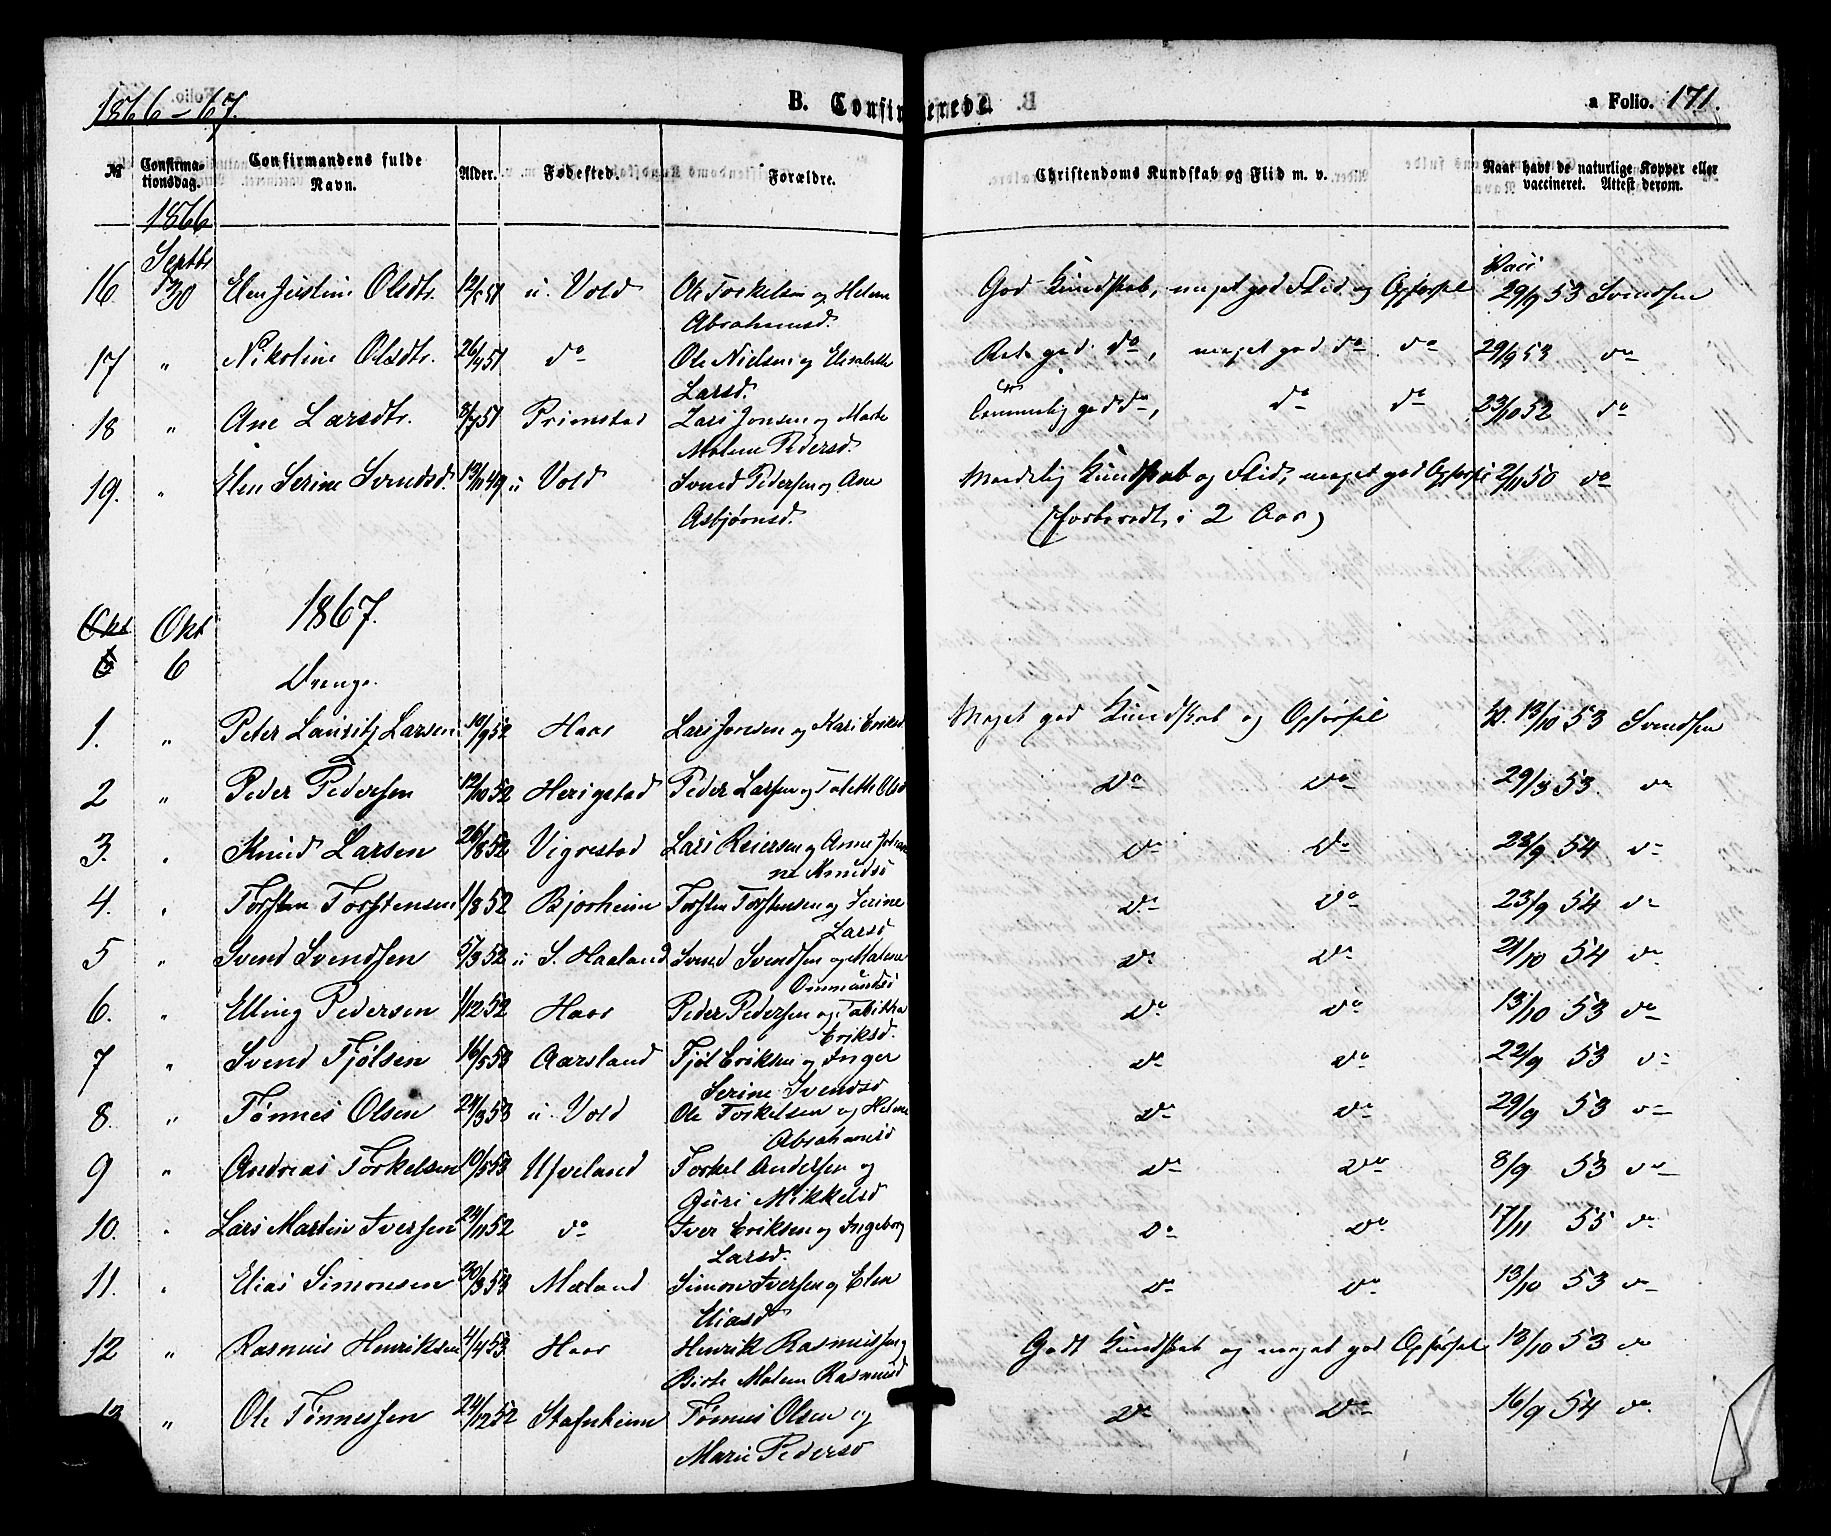 1866-67. B. Confirmerede. a Folio. 171.
№ Confirmationsdag. Confirmandens fulde Navn. Alder. Fødested. Forældre. Christendoms Kundskab og Flid m. v. Naar havt de naturlige Kopper eller vaccineret. Attest derom.
1866
Septbr
16 30 Elen Justine Olsdtr. 12/5 51 u. Vold Ole Torkelsen og Helene God Kundskab, meget god Flid og Opførsel Vacc 29/9 53 Svendsen
Abrahamsd.
17 " Nikoline Olsdtr. 26/4 51 do Ole Nielsen og Elisabeth Ret god do, meget god do do 29/9 53 do
Larsd.
18 " Ane Larsdtr. 8/7 51 Primstad Lars Jonsen og Marte Temmelig god do, do do 23/10 52 do
Malene Pedersd.
19. " Elen Serine Svendsd. 13/11 49 u Vold Svend Pedersen og Ane Maadelig Kundskab og Flid, meget god Opførsel 2/11 50 do
Asbjørnsd. (forberedt i 2 Aar)
1867.
Okt Okt
6 6 Drenge.
1. " Peter Lauritz Larsen 10/9 52 Haar Lars Jonsen og Kari Eriksd Meget god Kundskab og Opførsel V. 13/10 53 Svendsen
2 " Peder Pedersen 12/10 52 Herigstad Peder Larsen og Tolette Olsd do do 29/3 53. do
3. " Knud Larsen 26/8 52 Vigrestad Lars Reiersen og Anne Johan- do do 23/9 54 do
ne Knudsd
4. " Torsten Torstensen 1/8 52 Bjorheim Torsten Torstensen og Serine do do 23/9 54 do
Larsd
5 " Svend Svendsen 5/3 52 u S. Haaland Svend Svendsen og Malene do do 21/10 54 do
Ommundsd
6. " Elling Pedersen 1/12 52 Haar Peder Pedersen og Tabitha do do 13/10 53 do
Eriksd.
7 " Svend Tjølsen 16/5 53 Aarsland Tjøl Eriksen og Inger do do 22/9 53 do
Serine Svendsd
8. " Tønnes Olsen 24/3 53 u. Vold Ole Torkelsen og Helene do do 29/9 53 do
Abrahamsd
9 " Andreas Torkelsen 10/5 53 Ueland Torkel Andersen og do do 8/9 53 do
Guri Mikkelsd
10. " Lars Martin Iversen 24/11 52 do Iver Eriksen og Ingeborg do do 17/11 55 do
Larsd.
11. " Elias Simonsen 30/3 53 Mæland Simon Iversen og Elen do do 13/10 53 do
Eliasd
12 " Rasmus Henriksen 4/4 53 Haar Henrik Rasmussen og Godt Kundskab og meget god Opførsel 13/10 53 do
Birte Malene Rasmusd
13 " Ole Tønnessen 24/12 52 Stafnheim Tønnes Olsen og do do 16/9 54 do.
Marie Pedersd